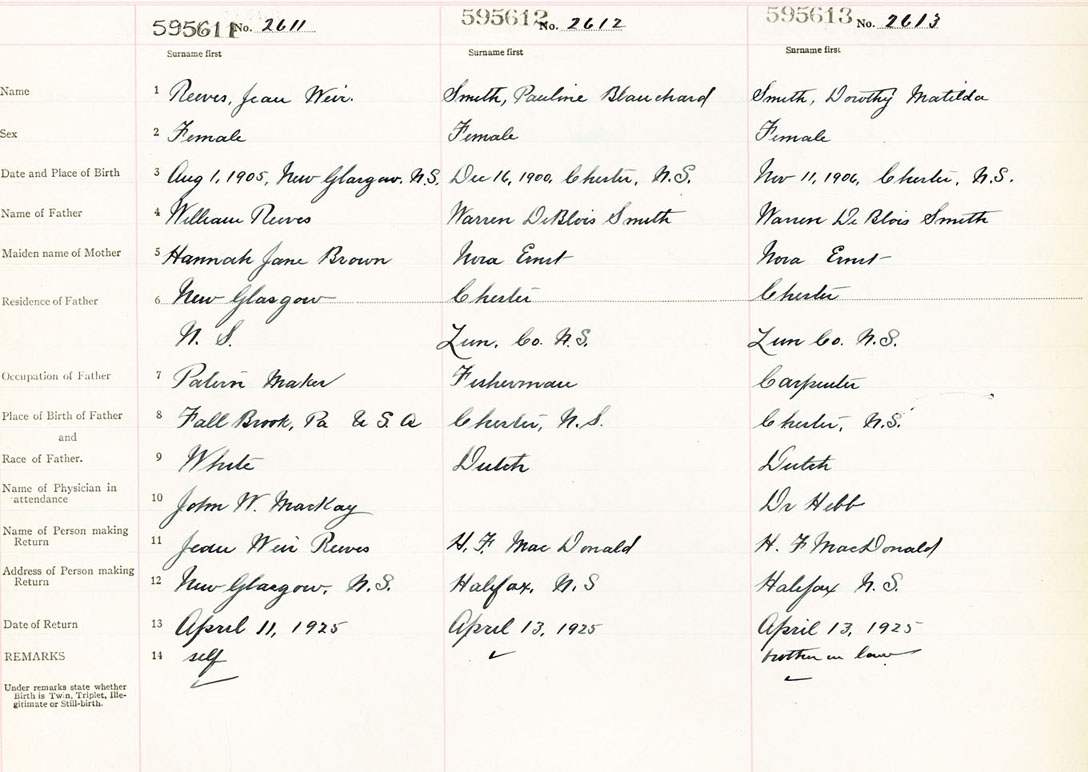 595611 No. 2611 595612 No. 2612 595613 No. 2613
Surname first Surname first Surname first
Name 1 Reeves, Jean Weir. Smith, Pauline Blanchard Smith, Dorothy Matilda
Sex 2 Female Female Female
Date and Place of Birth 3 Aug 1, 1905, New Glasgow. N.S. Dec 16, 1900, Chester, N.S. Nov 11, 1906, Chester, N.S.
Name of Father 4 William Reeves Warren DeBlois Smith Warren De Blois Smith
Maiden name of Mother 5 Hannah Jane Brown Nora Ernst Nora Ernst
Residence of Father 6 New Glasgow Chester Chester
N. S. Lun. Co. N.S. Lun Co. N.S.
Occupation of Father 7 Patern Maker Fisherman Carpenter
Place of Birth of Father 8 Fall Brook, Pa U S A Chester, N.S. Chester, N.S.
and
Race of Father. 9 White Dutch Dutch
Name of Physician in
attendance 10 John W. MacKay Dr Hebb
Name of Person making
Return 11 Jean Weir Reeves H. F. Mac Donald H. F MacDonald
Address of Person making
Return 12 New Glasgow, N.S. Halifax, N.S Halifax N.S.
Date of Return 13 April 11, 1925 April 13, 1925 April 13, 1925
REMARKS 14 self brother in law
Under remarks state whether
Birth is Twin, Triplet, Ille-
gitimate or Still-birth.